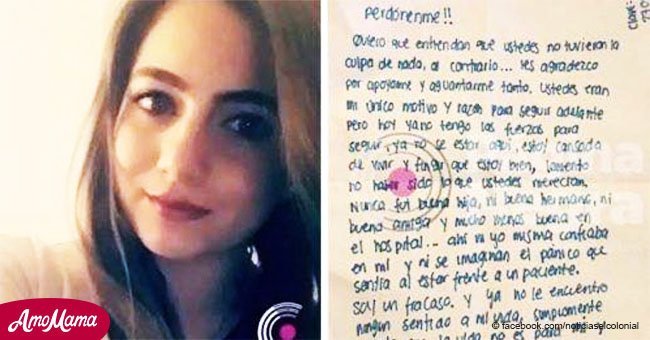 perdónenme!!
Quiero que entiendan que ustedes no tuvieron la
culpa de nada, al contrario... les agradezco
por apoyarme y aguantarme tanto. Ustedes eran
mi único motivo y razón para seguir adelante
pero hoy ya no tengo las fuerzas para
seguir, ya no se estar aqui, estoy cansada
de vivir y fingir que estoy bien, lamento
no haber sido lo que ustedes merecian,
Nunca fui buena hija, ni buena hermana, ni
buena amiga y mucho menos buena en
el hospital... ahi ni yo misma confiaba
en mi y ni se imaginan el pánico que
sentia al estar frente a un paciente.
Soy un fracaso. Y ya no le encuentro
ningún sentido a mi vida, simplemente
la vida no es para mi y
AmoMama
© facebook.com/noticiaselcolonial